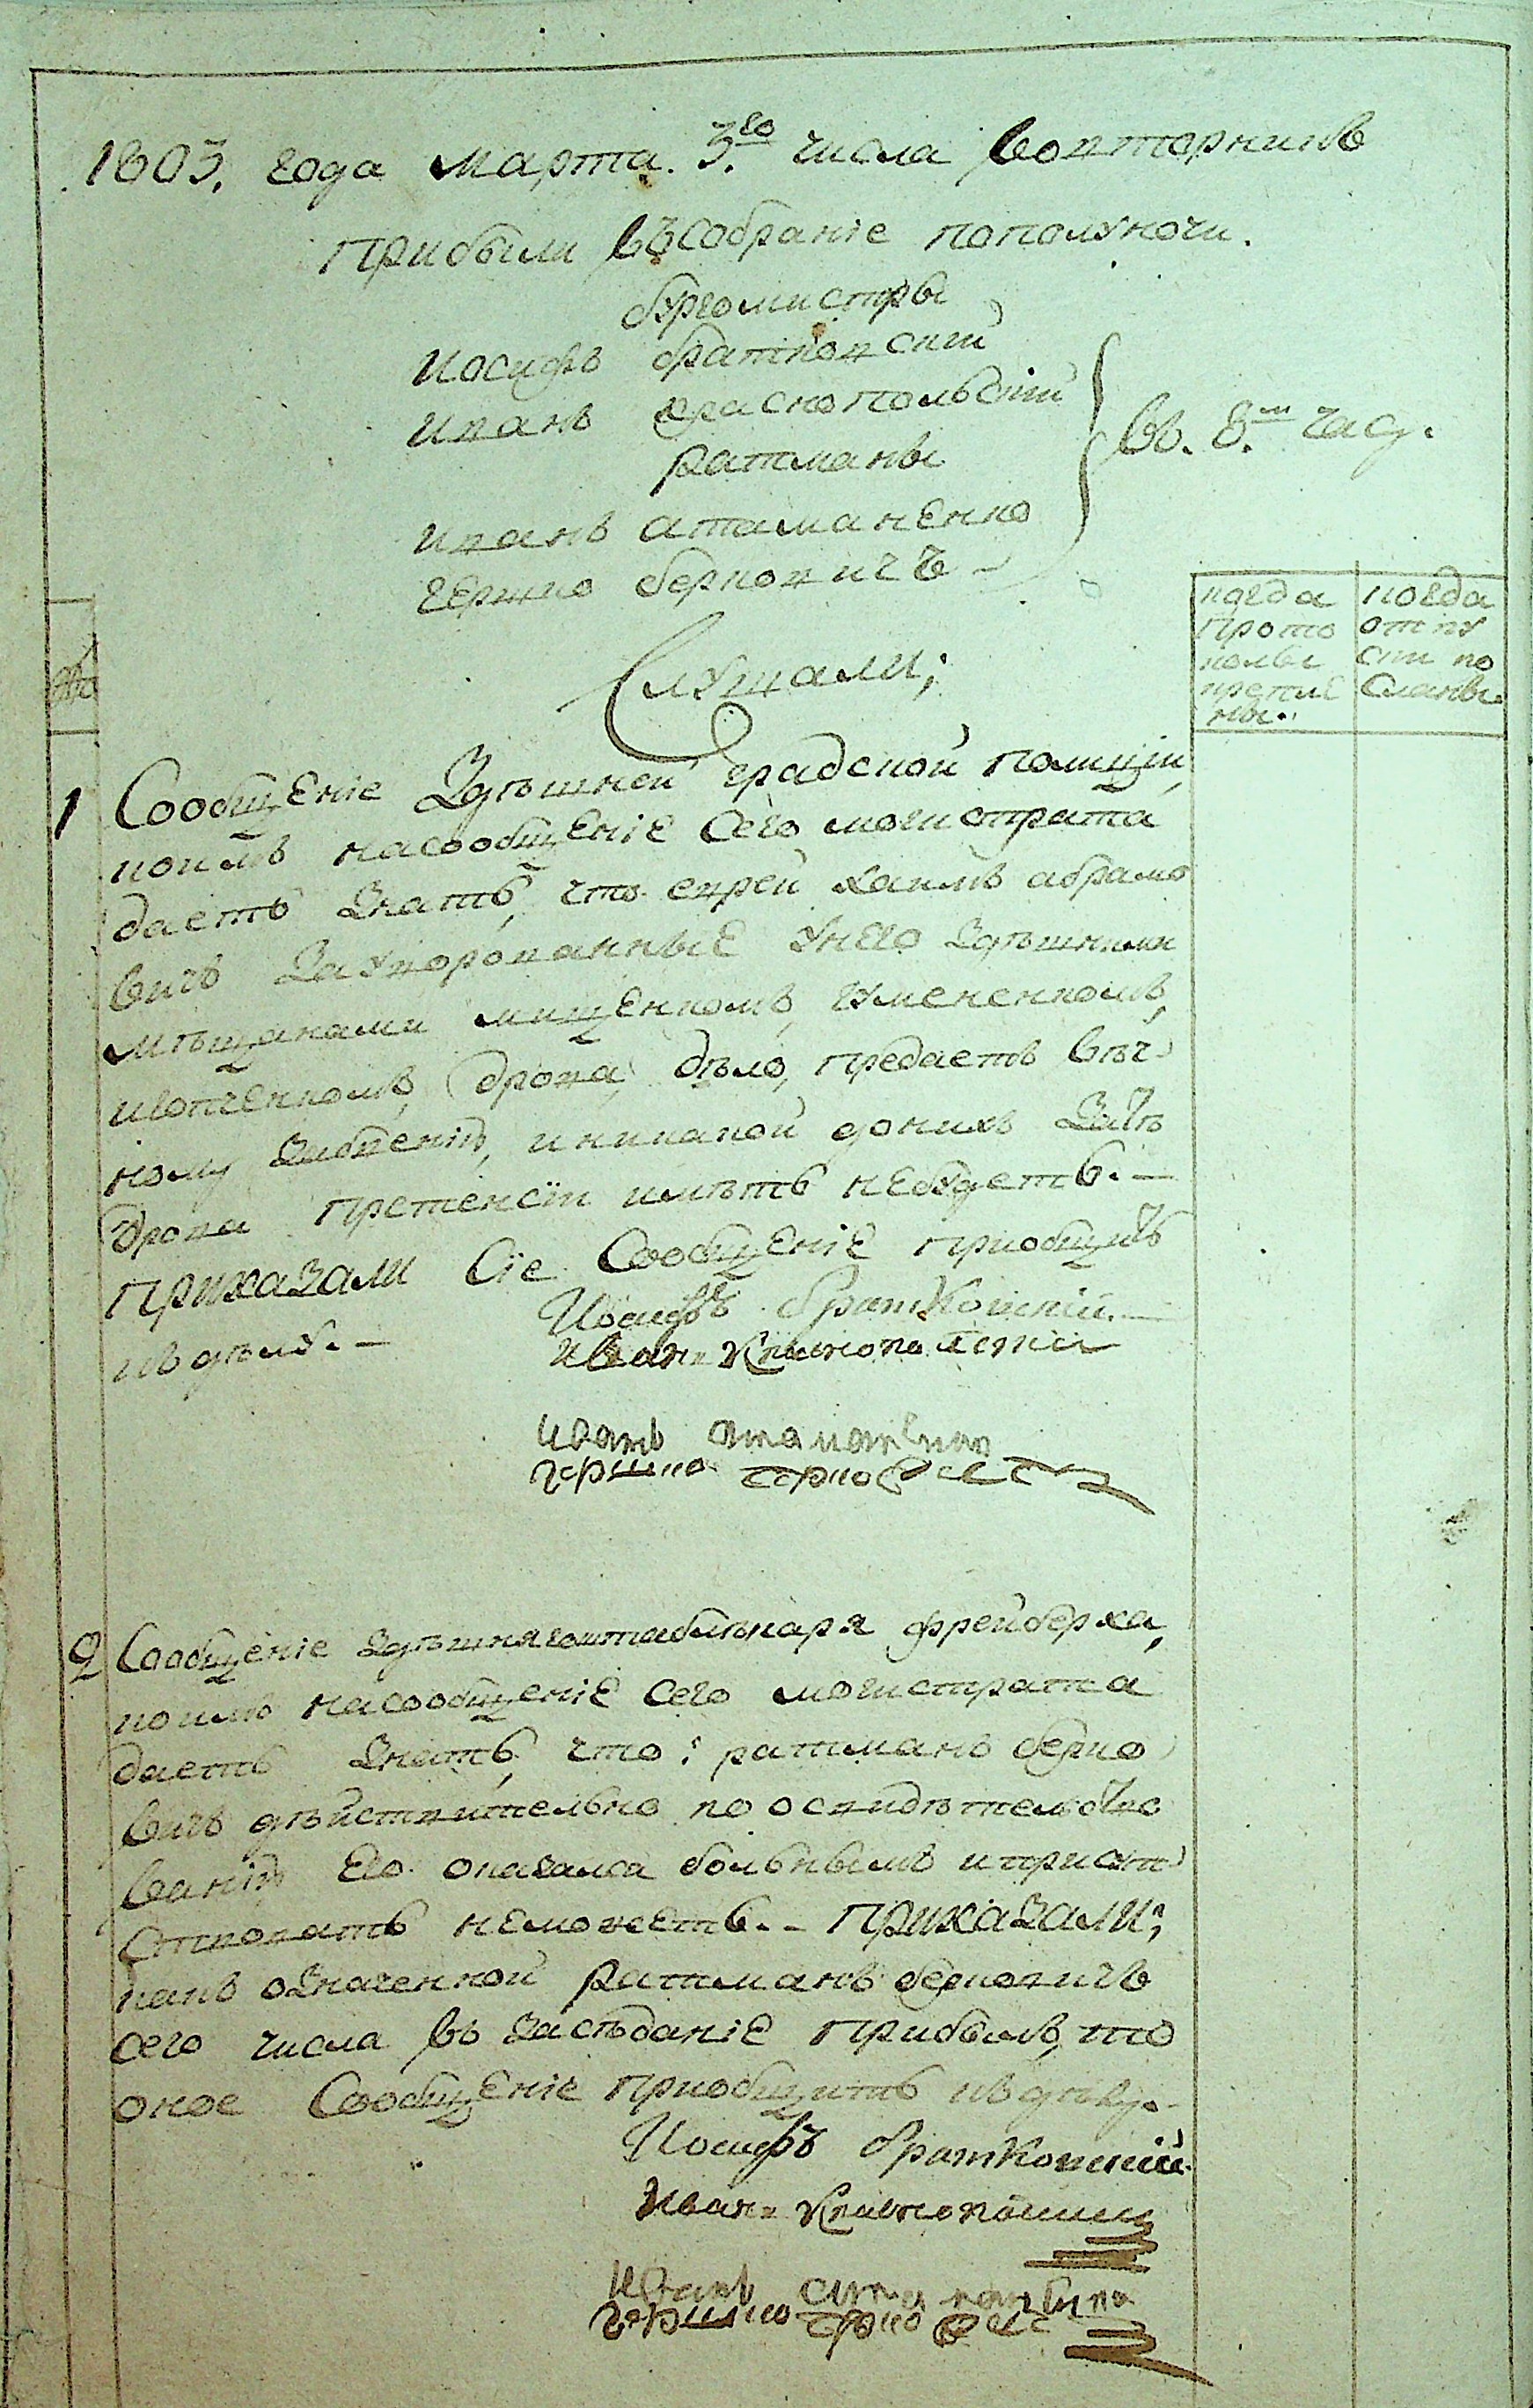 1803. года марта. 3.го числа вовторникъ
Прибыли въ собраніе пополуночи.
бургомистры
Иосифъ братковскій
Иванъ краснопольскій
въ. 8.м часу.
ратманы
Иванъ атаманенко
гершко берковичъ
когда прото колы крепле ны.
когда отпу ски по сланы.
Слушали;
1 Сообщеніе Здѣшней градской полиціи,
коимъ насообщеніе Сего могистрата
даетъ Знать, что еврей хаимъ абрамо
вичъ Зауворованные Унего Здѣшними
мѣщанами мищенкомъ, гумененкомъ,
дрова, дѣло, предаетъ вѣч
ному Забвенію, иникакой доних За тѣ
дрова претенсіи имѣть небудетъ. —
Приказали Сіе Сообщеніе приобщить
къ дѣлу. —
Иосифъ братковскій
Иванъ Краснопольский
Иванъ атаманенко
гершко берковичъ
2 Сообщеніе здѣшняго штаблѣкаря фрейберха,
коимъ насообщеніе сего могистрата
даетъ Знать, что: ратманъ берко
вичъ дѣйствительно по освидѣтельство
ванію Его оказался больнымъ и присут
ствовать неможетъ. — Приказали;
какъ означенной ратманъ берковичъ
сего числа въ засѣданіе прибылъ, то
оное Сообщеніе приобщить къ дѣлу. —
Иосифъ братковскій
Иванъ Краснопольский
Иванъ атаманенко
гершко берковичъ